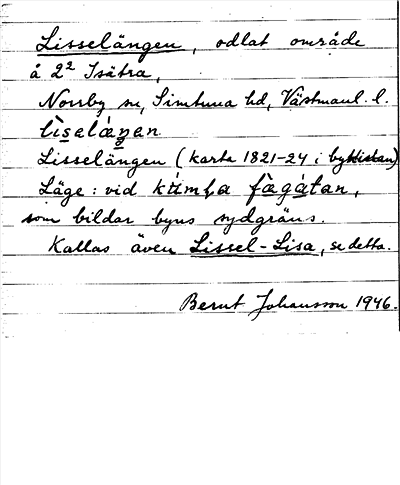 Lisselängen, odlat område
å 2² Isätra,
Norrby sn, Simtuna hd, Västmanl. l.
lìselǻŋen
Lisselängen (karta 1821-24 i bykistan)
Läge: vid fǟgátan,
som bildar byns sydgräns.
Kallas även Lissel-Lisa, se detta.
Bernt Johansson 1946.